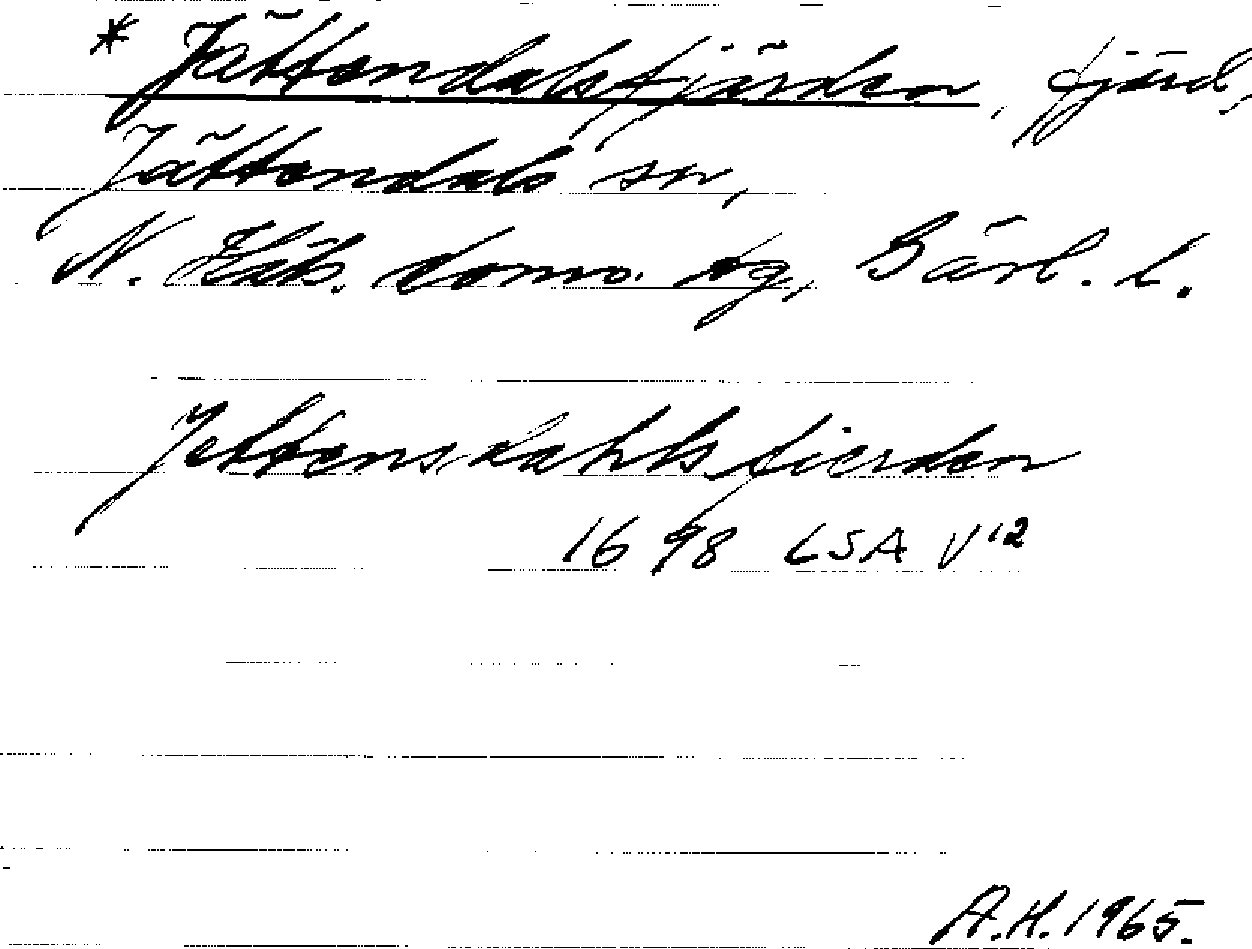 * Jättendalsfjärden, fjärd,
Jättendals sn,
N. Häls. doms. tg, Gävl. l.
Jettensdahls fierden
1698 LSA V12
A.H. 1965.